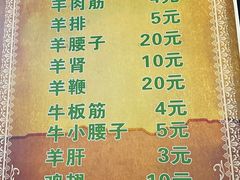 羊肉筋 4元
羊排 5元
羊腰子 20元
羊肾 10元
羊鞭 20元
牛板筋 4元
牛小腰子 5元
羊肝 3元
鸡翅 10元